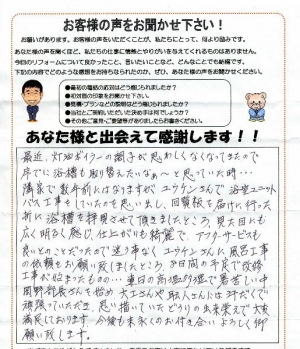 お客様の声をお聞かせ下さい！
お願いがあります。お客様の声をいただくことが、私たちにとって、何より励みです。
あなた様の声を聞くほど、私たちの仕事に情熱とやりがいを与えてくれるものはありません。
今回のリフォームについて良かったこと、言いたいことなど、どんなことでも結構です。
下記の内容でどのような感想をお持ちなられたのか、ぜひ、あなた様の声をお聞かせください。
●最初の電話の応対はどう感じられましたか？
●初対面の印象をお聞かせ下さい。
●見積・プランなどの説明はどう感じられましたか？
●当社とご契約いただいた決め手は何でしょうか？
●その他ご意見・ご要望等がありましたらお書きください。
あなた様と出会えて感謝します！！
最近、灯油ボイラーの調子が思わしくなくなってきたので
序でに浴槽も取り替えたいなぁ〜と思っていた時…
清泉で数年前にはなりますが、ユウケンさんで浴室ユニット
バス工事をしていたのを思い出し、回覧板を届けに行った
折に浴槽を拝見させて頂きましたところ、見た目にも
広く明るく感じ、仕上がりも綺麗で、アフターサービスも
良いとのことだったので迷う事なく、ユウケンさんに風呂工事
の依頼をお願い致しましたところ、3日間の予定で改修
工事が始まったものの…連日の高温多湿で暑苦しい中
岡野部長さんを始め、大工さんや職人さんには汗だくで
頑張っていただき、思い描いていたどうりの出来栄えで大変
満足しております。今後も末永くのお付き合いよろしく御
願い致します。